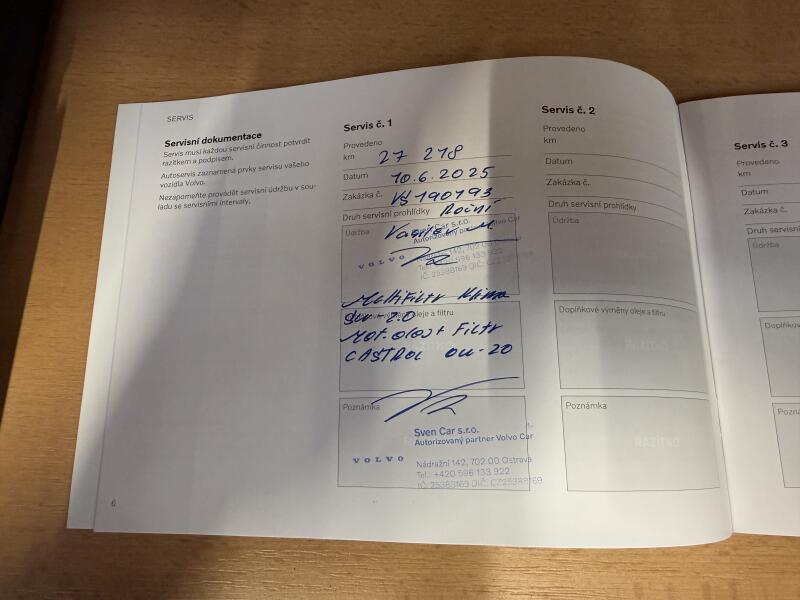 SERVIS
Servisní dokumentace
Servis musí každou servisní činnost potvrdit
razítkem a podpisem.
Autoservis zaznamená prvky servisu vašeho
vozidla Volvo.
Nezapomeňte provádět servisní údržbu v sou-
ladu se servisními intervaly.
6
Servis č. 1
Provedeno
km 27 218
Datum 10.6.2025
Zakázka č. VS190193
Druh servisní prohlídky Roční
Údržba
Sven Car s.r.o.
Autorizovaný partner Volvo Car
VOLVO
Nádražní 142, 702 00 Ostrava
Tel.: +420 596 133 922
IČ: 25388169 DIČ: CZ25388169
Multifiltr Klima
Doplňkové výměny oleje a filtru
Mot. olej + Filtr
CASTROL 0W-20
Poznámka
Sven Car s.r.o.
Autorizovaný partner Volvo Car
VOLVO
Nádražní 142, 702 00 Ostrava
Tel.: +420 596 133 922
IČ: 25388169 DIČ: CZ25388169
Servis č. 2
Provedeno
km
Datum
Zakázka č.
Druh servisní prohlídky
Údržba
Doplňkové výměny oleje a filtru
RAZÍTKO
Poznámka
RAZÍTKO
Servis č. 3
Provedeno
km
Datum
Zakázka č.
Druh servisní
Údržba
Doplňkové
Pozn